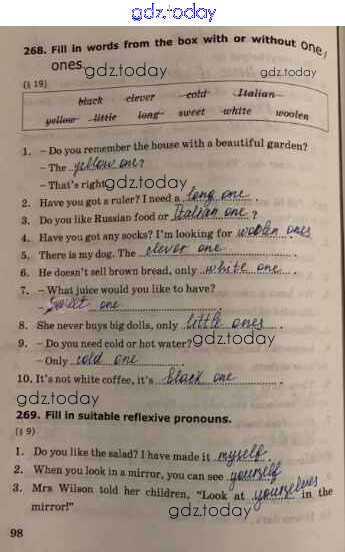 gdz.today
268. Fill in words from the box with or without one,
ones
gdz.today
(§ 19)
black clever cold Italian
yellow little long sweet white woolen
1. – Do you remember the house with a beautiful garden?
– The yellow one?
– That's right
gdz.today
2. Have you got a ruler? I need a long one.
3. Do you like Russian food or Italian one?
4. Have you got any socks? I'm looking for woolen ones
5. There is my dog. The clever one.
6. He doesn't sell brown bread, only white one.
7. – What juice would you like to have?
– Sweet one
8. She never buys big dolls, only little ones.
9. – Do you need cold or hot water?
gdz.today
– Only cold one
10. It's not white coffee, it's black one.
gdz.today
269. Fill in suitable reflexive pronouns.
(§ 9)
gdz.today
1. Do you like the salad? I have made it myself.
2. When you look in a mirror, you can see yourself
3. Mrs Wilson told her children, "Look at yourselves in the
mirror!"
gdz.today
98